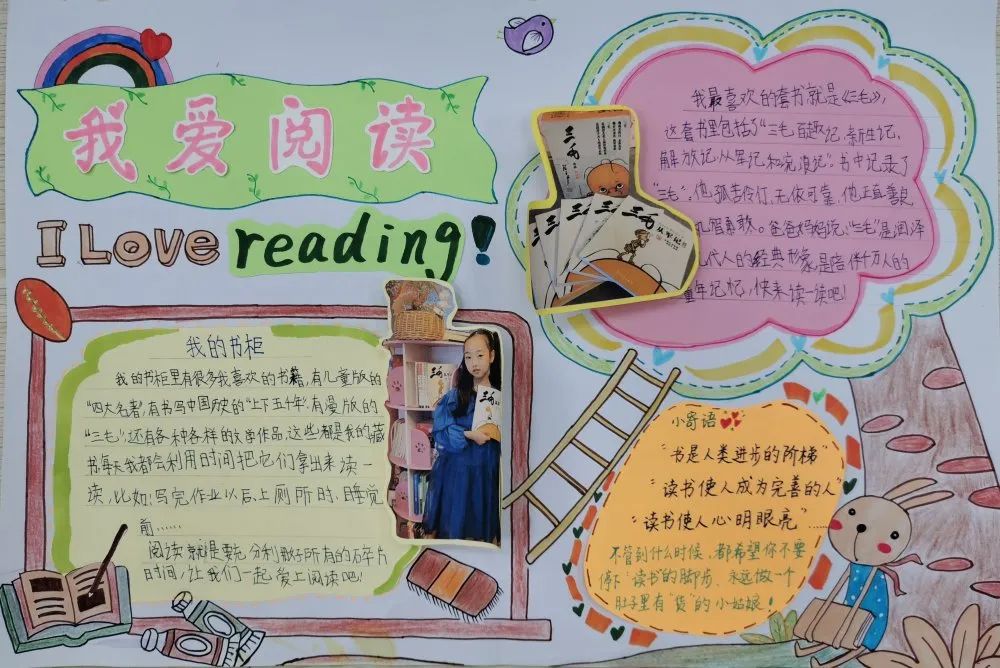 我爱阅读
I Love reading!
我的书柜
我的书柜里有很多我喜欢的书籍,有儿童版的
"四大名者",有书写中国历史的"上下五千年",有漫版的
"三毛",还有各种各样的文学作品,这些都是我的藏
书每天我都会利用时间把它们拿出来读一
读,比如:写完作业以后、上厕所时、睡觉
前......
阅读就是要充分利用好所有的碎片
时间,让我们一起爱上阅读吧!
我最喜欢的套书就是《三毛》,
这套书里包括了"三毛百趣记、新生记、
解放记、从军记和流浪记"书中记录了
"三毛",他孤苦伶仃、无依可靠,他正直善良
机智勇敢。爸爸妈妈说,"三毛"是润泽
几代人的经典形象,是陪伴千万人的
童年记忆,快来读一读吧!
三毛
三毛
从军记
三毛
小寄语
"书是人类进步的阶梯"
"读书使人成为完善的人"
"读书使人心明眼亮"......
不管到什么时候,都希望你不要
停下"读书"的脚步、永远做一个
肚子里有"货"的小姑娘!